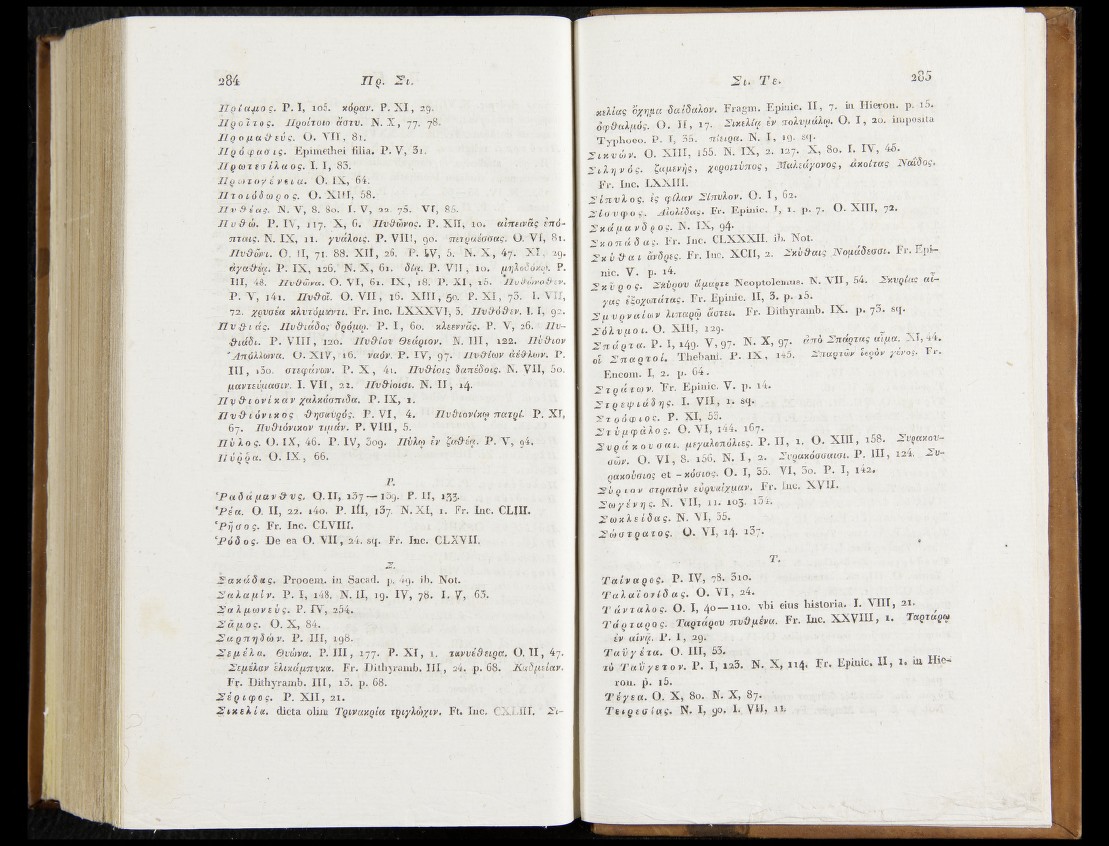 284 Πρ. Σι.
Πρίαμος. P. I, 105. κόραν. P. XI, 29.
Προῖτος. Προίτοιο ἄστυ. N. X, 77. 78.
Προμαθεύς. O. VII, 81.
Πρόφασις. Epimethei filia. P. V, 31.
Πρωτεσίλαος. I. I, 83.
Πρωτογένεια. O. IX, 64.
Πτοιόδωρος. O. XIII, 58.
Πυθέας. N. V, 8. 80. I. V, 22. 75. VI, 85.
Πυθώ. P. IV, 117. X, 6. Πυθῶνος. P. XII, 10. αἰπεινᾶς ἐπό-
πταις. N. IX, 11. γυάλοις. P. VIII, 90. πετραέσσας. O. VI, 81.
Πυθῶνι. O. II, 71. 88. XII, 26. P. IV, 5. N. X, 47. XI, 29.
ἀγαθέᾳ. P. IX, 126. N. X, 61. δίᾳ. P. VII, 10. μηλοδόκῳ. P.
III, 48. Πυθῶνα. O. VI, 61. IX, 18. P. XI, 15. Πυθωνόθεν.
P. V, 141. Πυθοῖ. O. VII, 16. XIII, 50. P. XI, 73. I. VII,
72. χρυσέα κλυτόμαντι. Fr. Inc. LXXXVI, 3. Πυθόθεν. I. I, 92.
Πυθιάς. Πυθιάδος δρόμῳ. P. I, 60. κλεεννᾶς. P. V, 26. Πυ-
θιάδι. P. VIII, 120. Πυθίον Θεάριον. N. III, 122. Πύθιον
Ἀπόλλωνα. O. XIV, 16. ναόν. P. IV, 97. Πυθίων ἀέθλων. P.
III, 130. στεφάνων. P. X, 41. Πυθίοις δαπέδοις. N. VII, 50.
μαντεύμασιν. I. VII, 22. Πυθίοισι. N. II, 14.
Πυθιονίκαν χαλκάσπιδα. P. IX, 1.
Πυθιόνικος θησαυρός. P. VI, 4. Πυθιονίκῳ πατρί. P. XI,
67. Πυθιόνικον τιμάν. P. VIII, 5.
Πύλος. O. IX, 46. P. IV, 309. Πύλῳ ἐν ζαθέᾳ. P. V, 94.
Πύῤῥα. O. IX, 66.
Ρ.
Ῥαδάμανθυς. O. II, 137—139. P. II, 133.
Ῥέα. O. II, 22. 140. P. III, 137. N. XI, 1. Fr. Inc. CLIII.
Ῥῆσος. Fr. Inc. CLVIII.
Ῥόδος. De ea O. VII, 24. sq. Fr. Inc. CLXVII.
Σ.
Σακάδας. Prooem. in Sacad. p. 49. ib. Not.
Σαλαμίν. P. I, 148. N. II, 19. IV, 78. I. V, 63.
Σαλμωνεύς. P. IV, 254.
Σάμος. O. X, 84.
Σαρπηδών. P. III, 198.
Σεμέλα. Θυώνα. P. III, 177. P. XI, 1. τανυέθειρα. O. II, 47.
Σεμέλαν ἑλικάμπυκα. Fr. Dithyramb. III, 24. p. 68. Καδμείαν.
Fr. Dithyramb. III, 13. p. 68.
Σέριφος. P. XII, 21.
Σικελία. dicta olim Τριναкρία τριγλώχιν. Ft. Inc. Σι-
Σι. Τε. 285
κελίας ὄχημα δαιδάλον. Fragm. Epinic. II, 7. in Hieron. p. 15.
ὀφθαλμός. O. II, 17. Σικελίᾳ ἐν πολυμάλῳ. O. I, 20. imposita
Typhoeo. P. I, 35. πίειρα. N. I, 19. sq.
Σικυών. O. XIII, 155. N. IX, 2. 127. X, 80. I. IV, 45.
Σιληνός. ζαμενής, χοροιτύπος, Μαλεάγονος, ἀκοίτας Ναΐδος.
Fr. Inc. LXXIII.
Σίπυλος. ἐς φίλαν Σίπυλον. O. I, 62.
Σίσυφος. Αἰολίδας. Fr. Epinic. I, 1. p. 7. O. XIII, 72.
Σκάμανδρος. N. IX, 94.
Σκοπάδας. Fr. Inc. CLXXXII. ib. Not.
Σκύθαι ἄνδρες. Fr. Inc. XCII, 2. Σκύθαις Νομάδεσσι. Fr. Epi-
nic. V. p. 14.
Σκῦρος. Σκύρου ἅμαρτε Neoptolemus. N. VII, 54. Σκυρίας αἶ-
γας ἐξοχωτάτας. Fr. Epinic. II, 3. p. 15.
Σμυρναίων λιπαρῷ ἄστει. Fr. Dithyramb. IX. p. 73. sq.
Σόλυμοι. O. XIII, 129.
Σπάρτα. P. I, 149. V, 97. N. X, 97. ἀπὸ Σπάρτας αἷμα. XI, 44.
οἱ Σπαρτοί. Thebani. P. IX, 145. Σπαρτῶν ἱερὸν γένος. Fr.
Encom. I, 2. p. 64.
Στράτων. Fr. Epinic. V. p. 14.
Στρεψιάδης. I. VII, 1. sq.
Στρόφιος. P. XI, 53.
Στύμφαλος. O. VI, 144. 167.
Συράκουσαι. μεγαλοπόλιες. P. II, 1. O. XIII, 158. Συρακου-
σῶν. O. VI, 8. 156. N. I, 2. Συρακόσσαισι. P. III, 124. Συ-
ρακούσιος et - κόσιος. O. I, 35. VI, 30. P. I, 142.
Σύριον στρατὸν εὐρυαίχμαν. Fr. Inc. XVII.
Σωγένης. N. VII, 11. 103. 134.
Σωκλείδας. N. VI, 35.
Σώστρατος. O. VI, 14. 137.
Τ.
Ταίναρος. P. IV, 78. 310.
Ταλαϊονίδας. O. VI, 24.
Τάνταλος. O. I, 40—110. vbi eius historia. I. VIII, 21.
Τάρταρος. Ταρτάρου πυθμένα. Fr. Inc. XXVIII, 1. Ταρτάρῳ
ἐν αἰνᾷ. P. I, 29.
Ταϋγέτα. O. III, 53.
τὸ Ταΰγετον. P. I, 123. N. X, 114. Fr. Epinic. II, 1. in Hie-
ron. p. 15.
Τέγεα. O. X, 80. N. X, 87.
Τειρεσίας. N. I, 90. I. VII, 11.